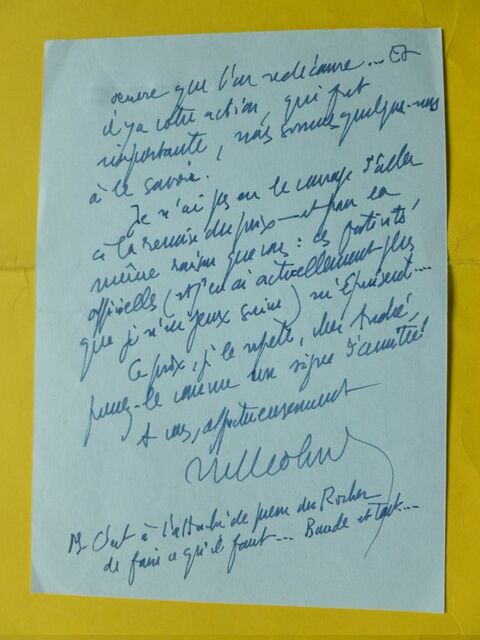 œuvre que l'on redécouvre... Et
il y a votre action, qui fut
importante, nous sommes quelques-uns
à le savoir.
Je n'ai pas eu le courage d'aller
à la remise du prix — et pour la
même raison que vous : ces
officielles (et j'en ai actuellement plus
que je n'en peux suivre) m'épuisent...
Ce prix, je le répète, cher André,
prenez-le comme un signe d'amitié.
A vous, affectueusement
PS C'est à l'attachée de presse du Rocher
de faire ce qu'il faut... Bande et tout...